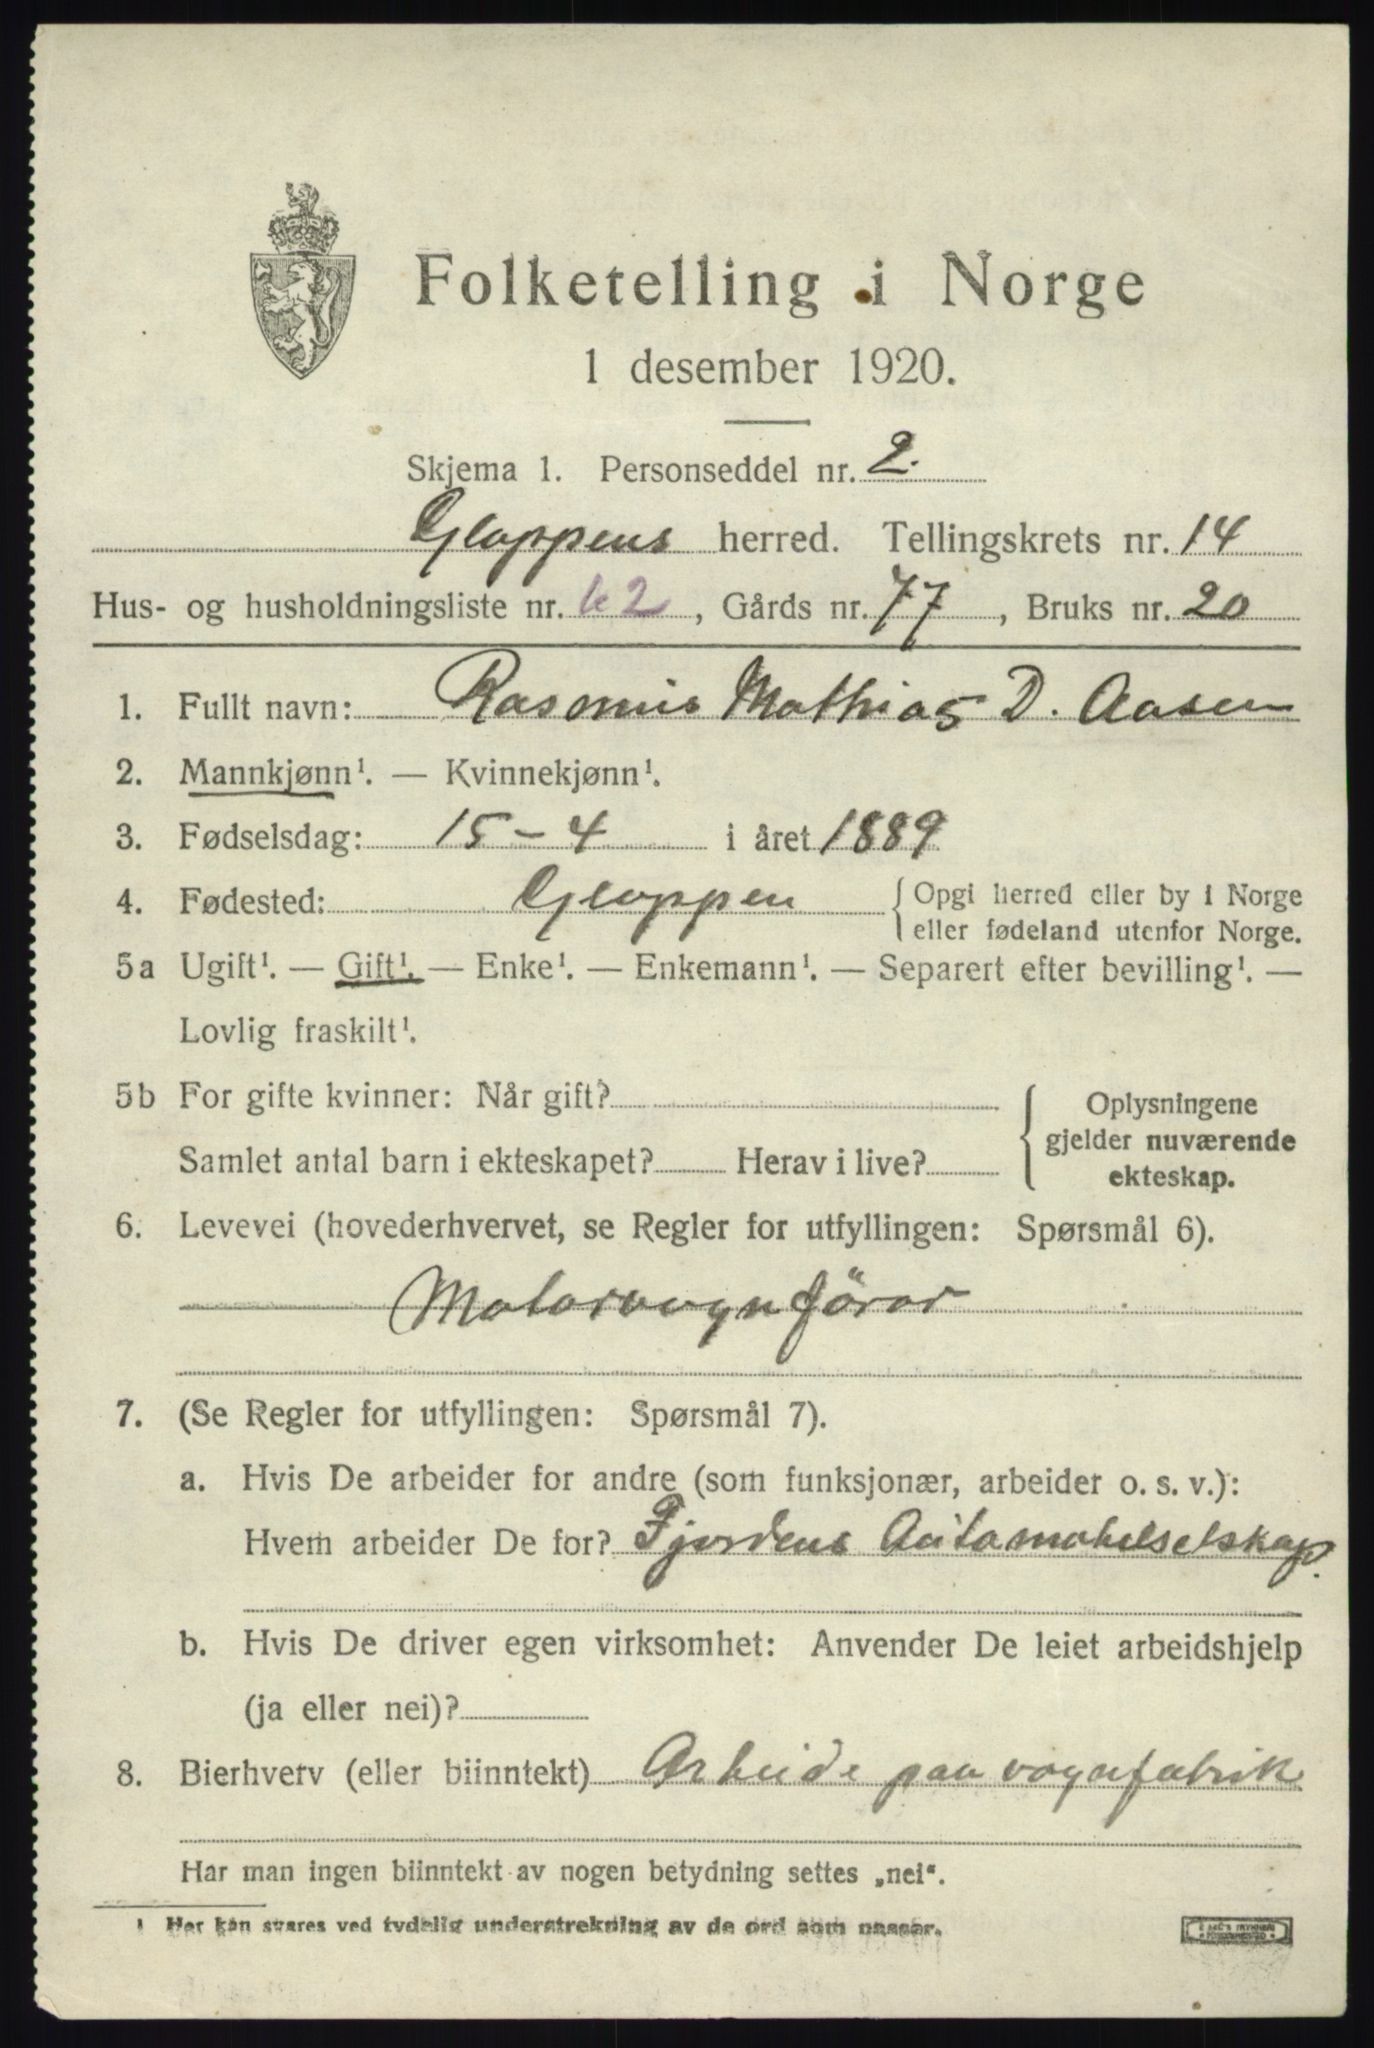 Folketelling i Norge
1 desember 1920.
Skjema 1. Personseddel nr. 2.
Gloppens herred. Tellingskrets nr. 14
Hus- og husholdningsliste nr. 62, Gårds nr. 77, Bruks nr. 20
1. Fullt navn: Rasmus Mathias D. Aasen
2. Mannkjønn¹. — Kvinnekjønn¹.
3. Fødselsdag: 15-4 i året 1889
4. Fødested: Gloppen { Opgi herred eller by i Norge
eller fødeland utenfor Norge.
5a Ugift¹. — Gift¹. — Enke¹. — Enkemann¹. — Separert efter bevilling¹. —
Lovlig fraskilt¹.
5b For gifte kvinner: Når gift?
Samlet antal barn i ekteskapet? Herav i live?
Oplysningene
gjelder nuværende
ekteskap.
6. Levevei (hovederhvervet, se Regler for utfyllingen: Spørsmål 6).
Motorvognförar
7. (Se Regler for utfyllingen: Spørsmål 7).
a. Hvis De arbeider for andre (som funksjonær, arbeider o. s. v.):
Hvem arbeider De for? Fjordens Automobilselskap.
b. Hvis De driver egen virksomhet: Anvender De leiet arbeidshjelp
(ja eller nei)?
8. Bierhverv (eller biinntekt) Arbeide paa vognfabrik
Har man ingen biinntekt av nogen betydning settes „nei“.
1 Her kan svares ved tydelig understrekning av de ord som passer.